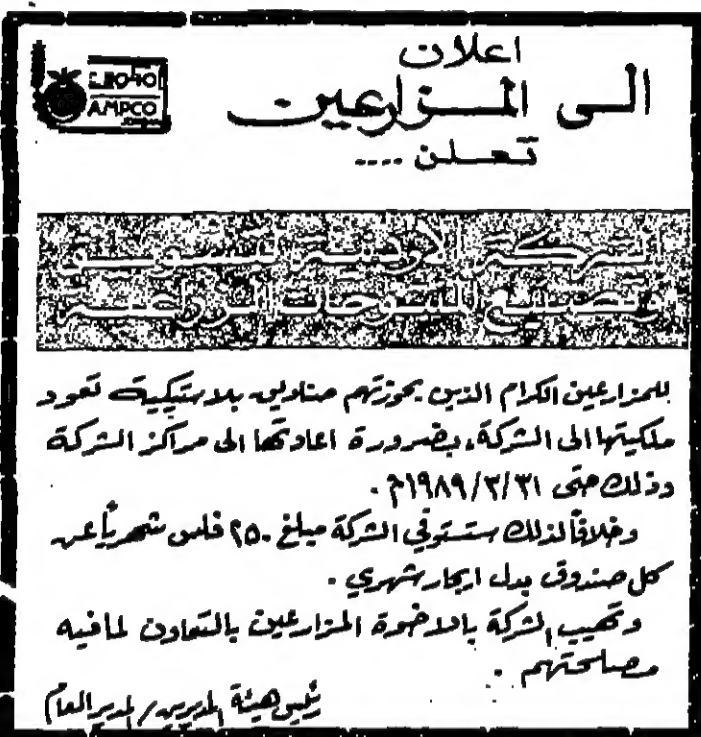 اعلان
الى المزارعين
تعلن ....
AMPCO
الشركة الاردنية لتسويق
وتصنيع المنتوجات الزراعية
للمزارعين الكرام الذين بحوزتهم صناديق بلاستيكية تعود
ملكيتها الى الشركة، بضرورة اعادتها الى مراكز الشركة
وذلك حتى ١٩٨٩/٣/٣١م .
وخلافاً لذلك ستستوفي الشركة مبلغ ٢٥٠ فلس شهرياً عن
كل صندوق بدل ايجار شهري .
وتهيب الشركة بالاخوة المزارعين بالتعاون لما فيه
مصلحتهم .
رئيس هيئة المديرين / المدير العام